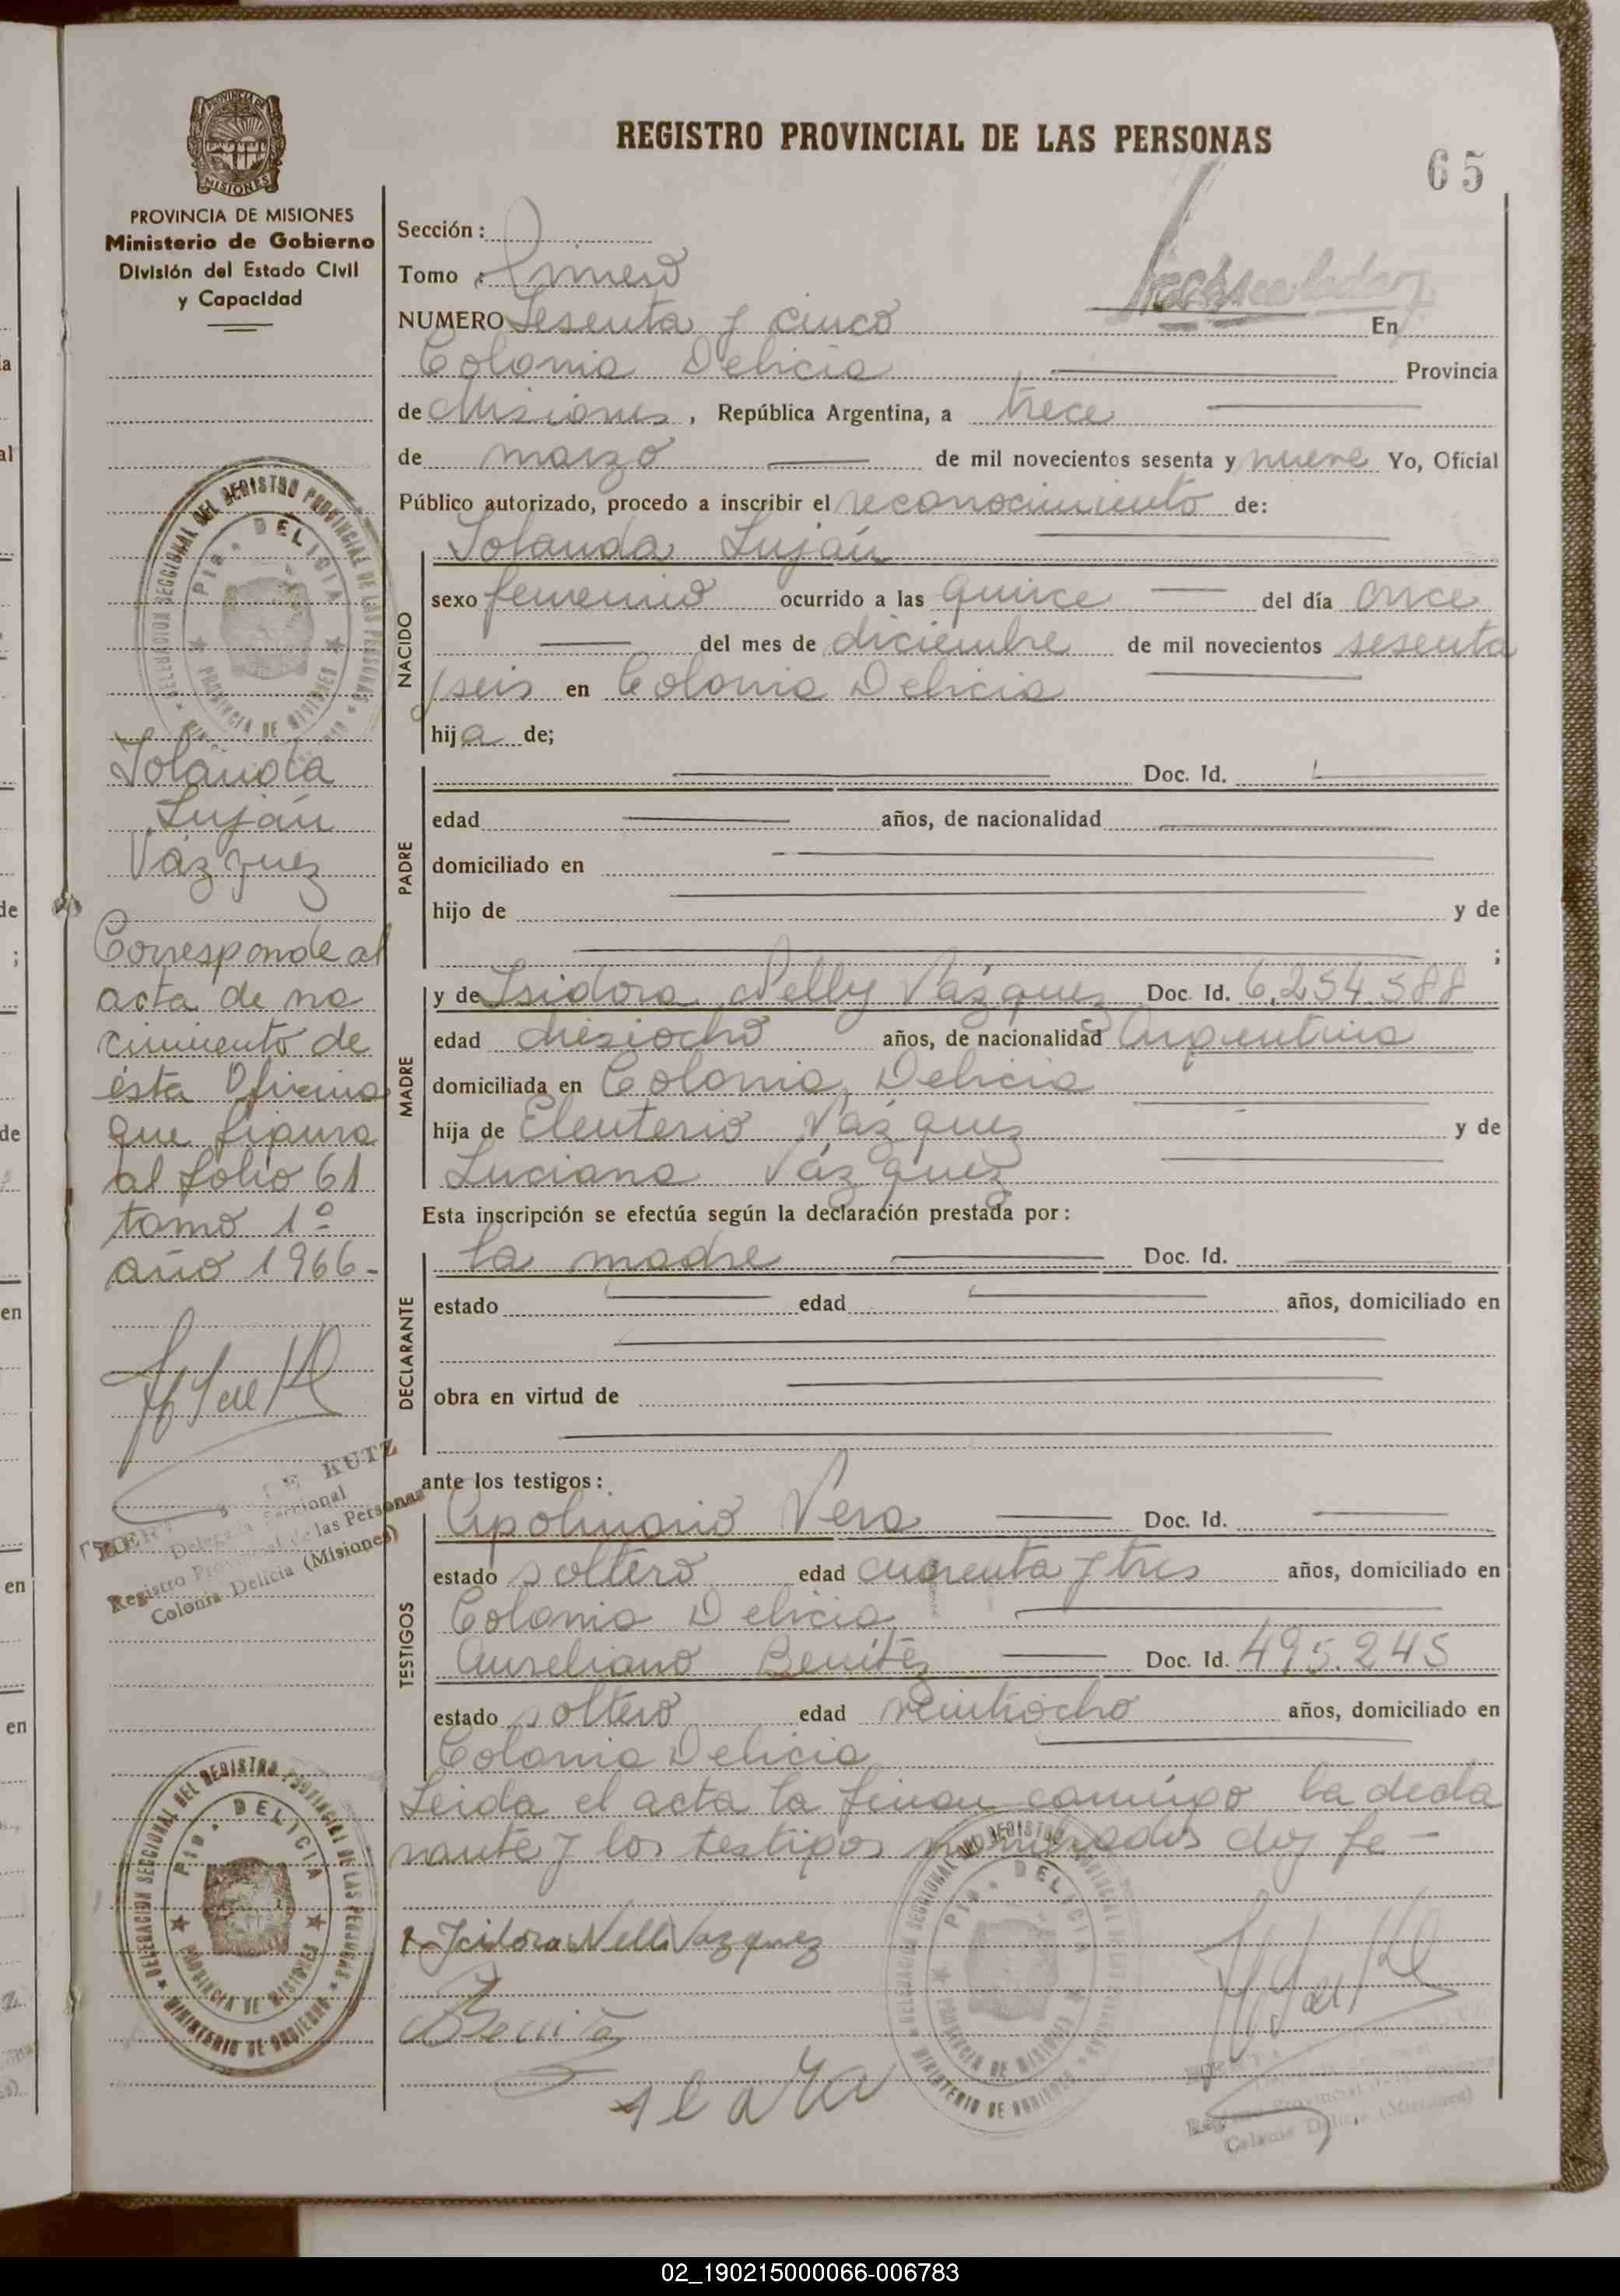 REGISTRO PROVINCIAL DE LAS PERSONAS
65
PROVINCIA DE MISIONES
MISIONES
PROVINCIA DE MISIONES
Ministerio de Gobierno
División del Estado Civil
y Capacidad
Sección :
Tomo : Primero
NUMERO Sesenta y cinco En
Colonia Delicia Provincia
de Misiones, República Argentina, a trece
de marzo de mil novecientos sesenta y nueve Yo, Oficial
Público autorizado, procedo a inscribir el reconocimiento de:
Iolanda Luján
NACIDO
sexo femenino ocurrido a las quince del día once
del mes de diciembre de mil novecientos sesenta
y seis en Colonia Delicia
hija de;
PADRE
Doc. Id.
edad años, de nacionalidad
domiciliado en
hijo de y de
;
MADRE
y de Isidora Nelly Vázquez Doc. Id. 6.254.588
edad dieziocho años, de nacionalidad Argentina
domiciliada en Colonia Delicia
hija de Eleuterio Vázquez y de
Luciana Vázquez
Esta inscripción se efectúa según la declaración prestada por:
DECLARANTE
la madre Doc. Id.
estado edad años, domiciliado en
obra en virtud de
ante los testigos:
TESTIGOS
Apolinario Vera Doc. Id.
estado soltero edad cuarenta y tres años, domiciliado en
Colonia Delicia
Aureliano Benítez Doc. Id. 495.245
estado soltero edad veintiocho años, domiciliado en
Colonia Delicia
Leida el acta la firman conmigo la decla
rante y los testigos nombrados doy fe -
Isidora Nelli Vazquez
DELEGACION SECCIONAL DEL REGISTRO PROVINCIAL DE LAS PERSONAS
Pto. DELICIA
PROVINCIA DE MISIONES
MINISTERIO DE GOBIERNO
Registro Provincial
Colonia Delicia (Misiones)
DELEGACION SECCIONAL DEL REGISTRO PROVINCIAL DE LAS PERSONAS
Pto. DELICIA
PROVINCIA DE MISIONES
Iolanda
Luján
Vázquez
Corresponde al
acta de na
cimiento de
ésta Oficina
que figura
al folio 61
tomo 1º
año 1966-
DE KUTZ
Delegada Seccional
Registro Provincial de las Personas
Colonia Delicia (Misiones)
DELEGACION SECCIONAL DEL REGISTRO PROVINCIAL DE LAS PERSONAS
Pto. DELICIA
PROVINCIA DE MISIONES
MINISTERIO DE GOBIERNO
a
al
de
;
de
en
en
en
02_190215000066-006783